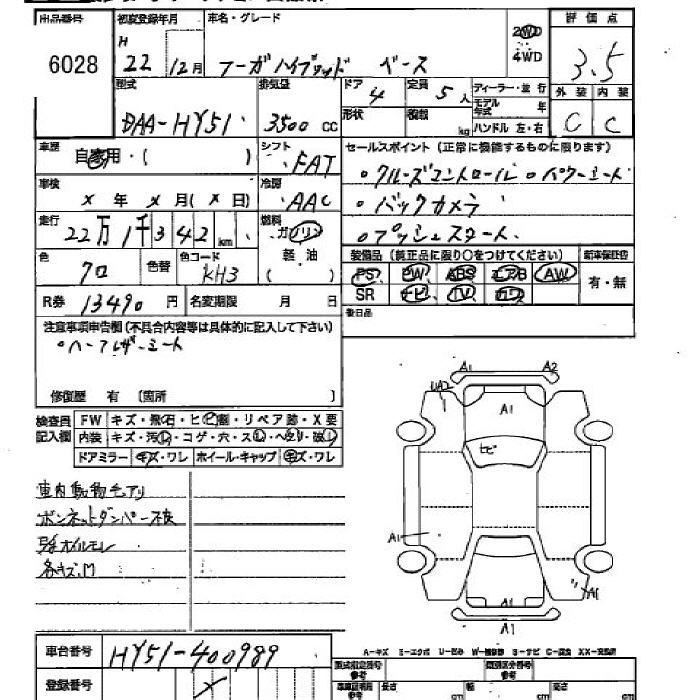 出品番号 初度登録年月 車名・グレード 評価点
6028 H 22 12月 フーガハイブリッド ベース 2WD 4WD 3.5
型式 排気量 ドア 4 定員 5人 ディーラー・並行 外装 内装
DAA-HY51 3500 CC 形状 積載 kg モデル年式 年 ハンドル 左・右 C C
車歴 自家用・( ) シフト FAT セールスポイント(正常に機能するものに限ります)
車検 × 年 × 月 ( × 日) 冷房 AAC 。クルーズコントロール 。パワーシート
。バックカメラ
走行 22万1千342km 燃料 ガソリン 軽油 ( ) 。プッシュスタート
色 クロ 色替 色コード KH3 装備品(純正品に限り○をつけてください) 新車保証書
PS PW ABS エアB AW 有・無
R券 13490円 名変期限 月 日 SR ナビ TV カワ
注意事項申告欄(不具合内容等は具体的に記入して下さい) 後日品
。ハーフレザーシート
修復歴 有 〔箇所 〕
検査員記入欄 FW キズ・飛石・ヒビ割・リペア跡・X要
内装 キズ・汚レ・コゲ・穴・スレ・ヘタリ・破レ
ドアミラー キズ・ワレ ホイール・キャップ キズ・ワレ
車内動物モアリ
ボンネットダンパー不良
各キズ、M
A1 A2
UA2
A1
ヒビ
A1
A1
A1
A1
車台番号 HY51-400989
A-キズ E-エクボ U-凹み W-補修跡 S-サビ C-腐食 XX-交換済
登録番号 型式指定番号 参考 類別区分番号 参考
長さ cm 幅 cm 高さ cm